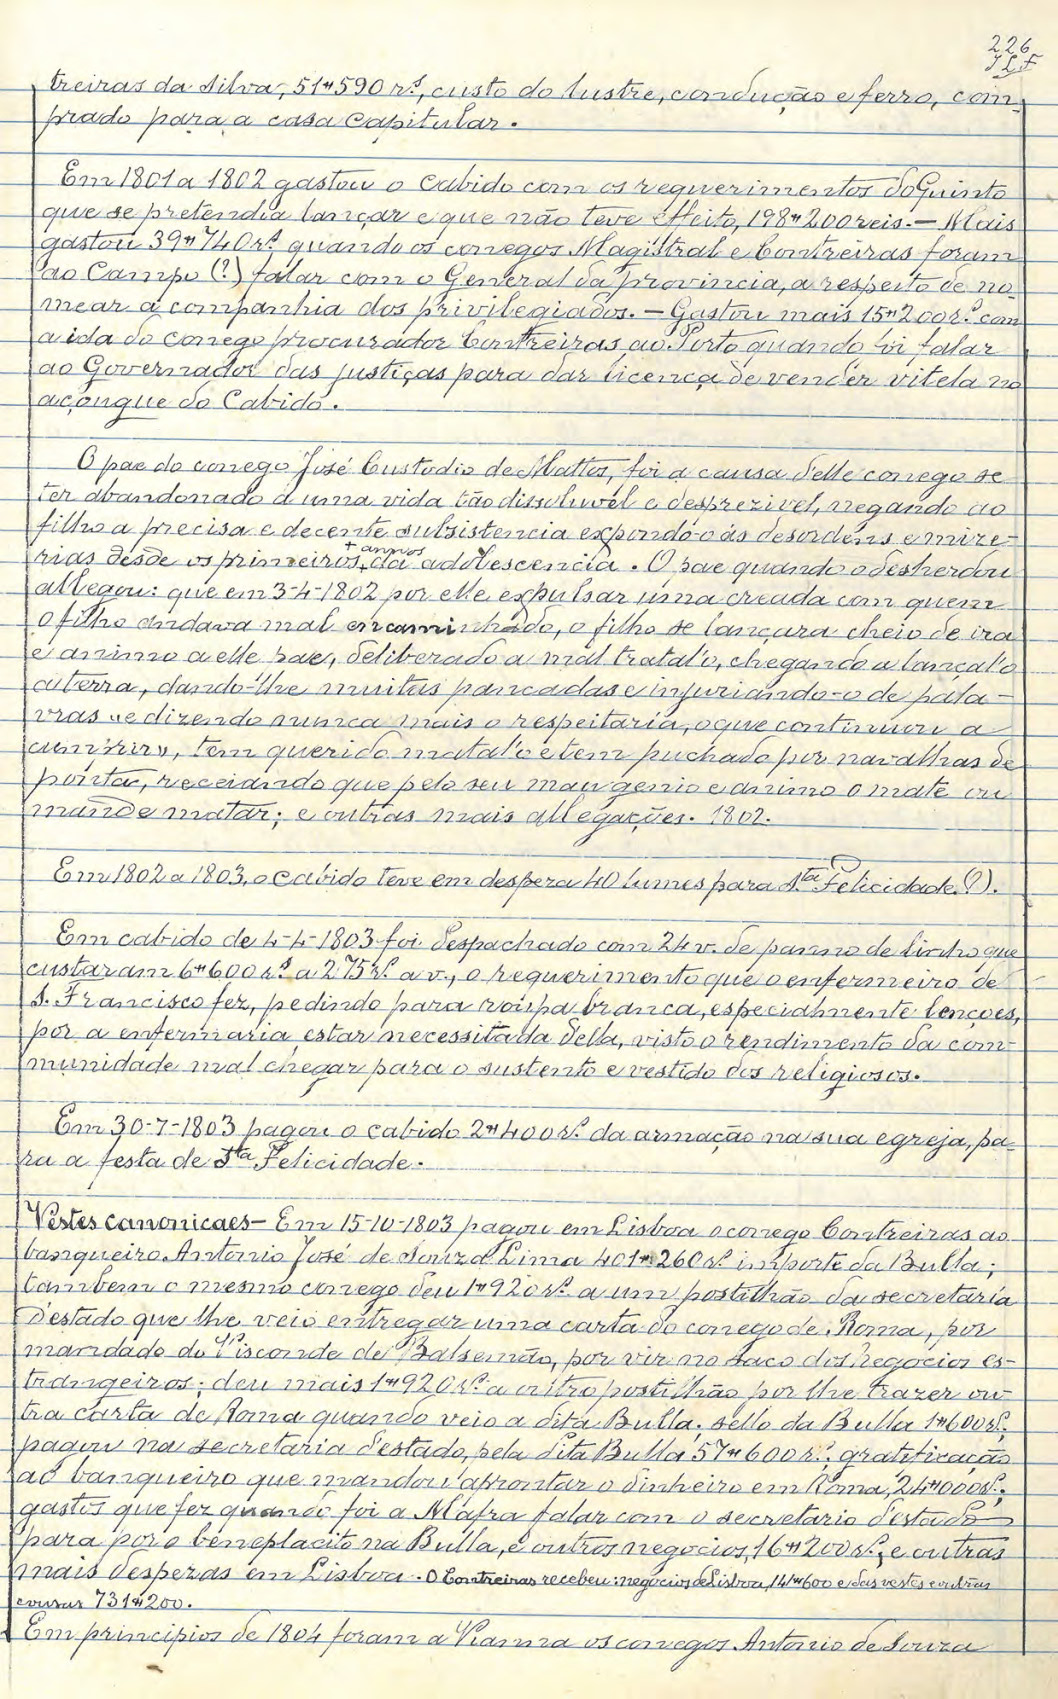 226
J L F
treiras da Silva, 51$590 rs., custo do lustre, condução e ferro, com-
prado para a casa capitular.
Em 1801 a 1802 gastou o Cabido com os requerimentos do Quinto
que se pretendia lançar e que não teve effeito, 198$200 reis. — Mais
gastou 39$740 rs. quando os conegos Magistral e Contreiras foram
ao Campo (?) falar com o General da provincia, a respeito de no-
mear a companhia dos privilegiados. — Gastou mais 15$200 rs. com
a ida do conego procurador Contreiras ao Porto quando foi falar
ao Governador das justiças para dar licença de vender vitela no
açougue do Cabido.
O pae do conego José Custodio de Mattos, foi a causa delle conego se
ter abandonado a uma vida tão dissoluvel e desprezivel, negando ao
filho a precisa e decente subsistencia expondo-o ás desordens e mize-
rias desde os primeiros + annos da adolescencia. O pae quando o desherdou
allegou: que em 3-4-1802 por elle expulsar uma creada com quem
o filho andava mal encaminhado, o filho se lançara cheio de ira
e animo a elle pae, deliberado a mal tratal'o, chegando a lançal'o
a terra, dando-lhe muitas pancadas e injuriando-o de pala-
vras "e dizendo nunca mais o respeitaria, o que continuou a
cumprir", tem querido matal'o e tem puchado por navalhas de
ponta, receiando que pelo seu mau genio e animo o mate ou
mande matar; e outras mais allegações. 1802.
Em 1802 a 1803, o cabido teve em despeza 40 lumes para Sta Felicidade (?).
Em cabido de 4-4-1803 foi despachado com 24 v. de panno de linho que
custaram 6$600 rs. a 275 rs. a v., o requerimento que o enfermeiro de
S. Francisco fez, pedindo para roupa branca, especialmente lençoes,
por a enfermaria estar necessitada della, visto o rendimento da com-
munidade mal chegar para o sustento e vestido dos religiosos.
Em 30-7-1803 pagou o cabido 2$400 rs. da armação na sua egreja, pa-
ra a festa de Sta Felicidade.
Vestes canonicaes — Em 15-10-1803 pagou em Lisboa o conego Contreiras ao
banqueiro Antonio José de Souza Lima 401$260 rs. importe da Bulla;
tambem o mesmo conego deu 1$920 rs. a um postilhão da secretaria
d'estado que lhe veio entregar uma carta do conego de Roma, por
mandado do Visconde de Balsemão, por vir no saco dos negocios es-
trangeiros; deu mais 1$920 rs. a outro postilhão por lhe trazer ou-
tra carta de Roma quando veio a dita Bulla; sello da Bulla 1$600 rs.;
pagou na secretaria d'estado, pela dita Bulla 57$600 rs.; gratificação
ao banqueiro que mandou aprontar o dinheiro em Roma, 24$000 rs.;
gastos que fez quando foi a Mafra falar com o secretario d'estado
para por o beneplacito na Bulla, e outros negocios, 16$200 rs.; e outras
mais despezas em Lisboa. O Contreiras recebeu: negocios de Lisboa, 141$600 e das vestes e outras
cousas 731$200.
Em principios de 1804 foram a Vianna os conegos Antonio de Souza